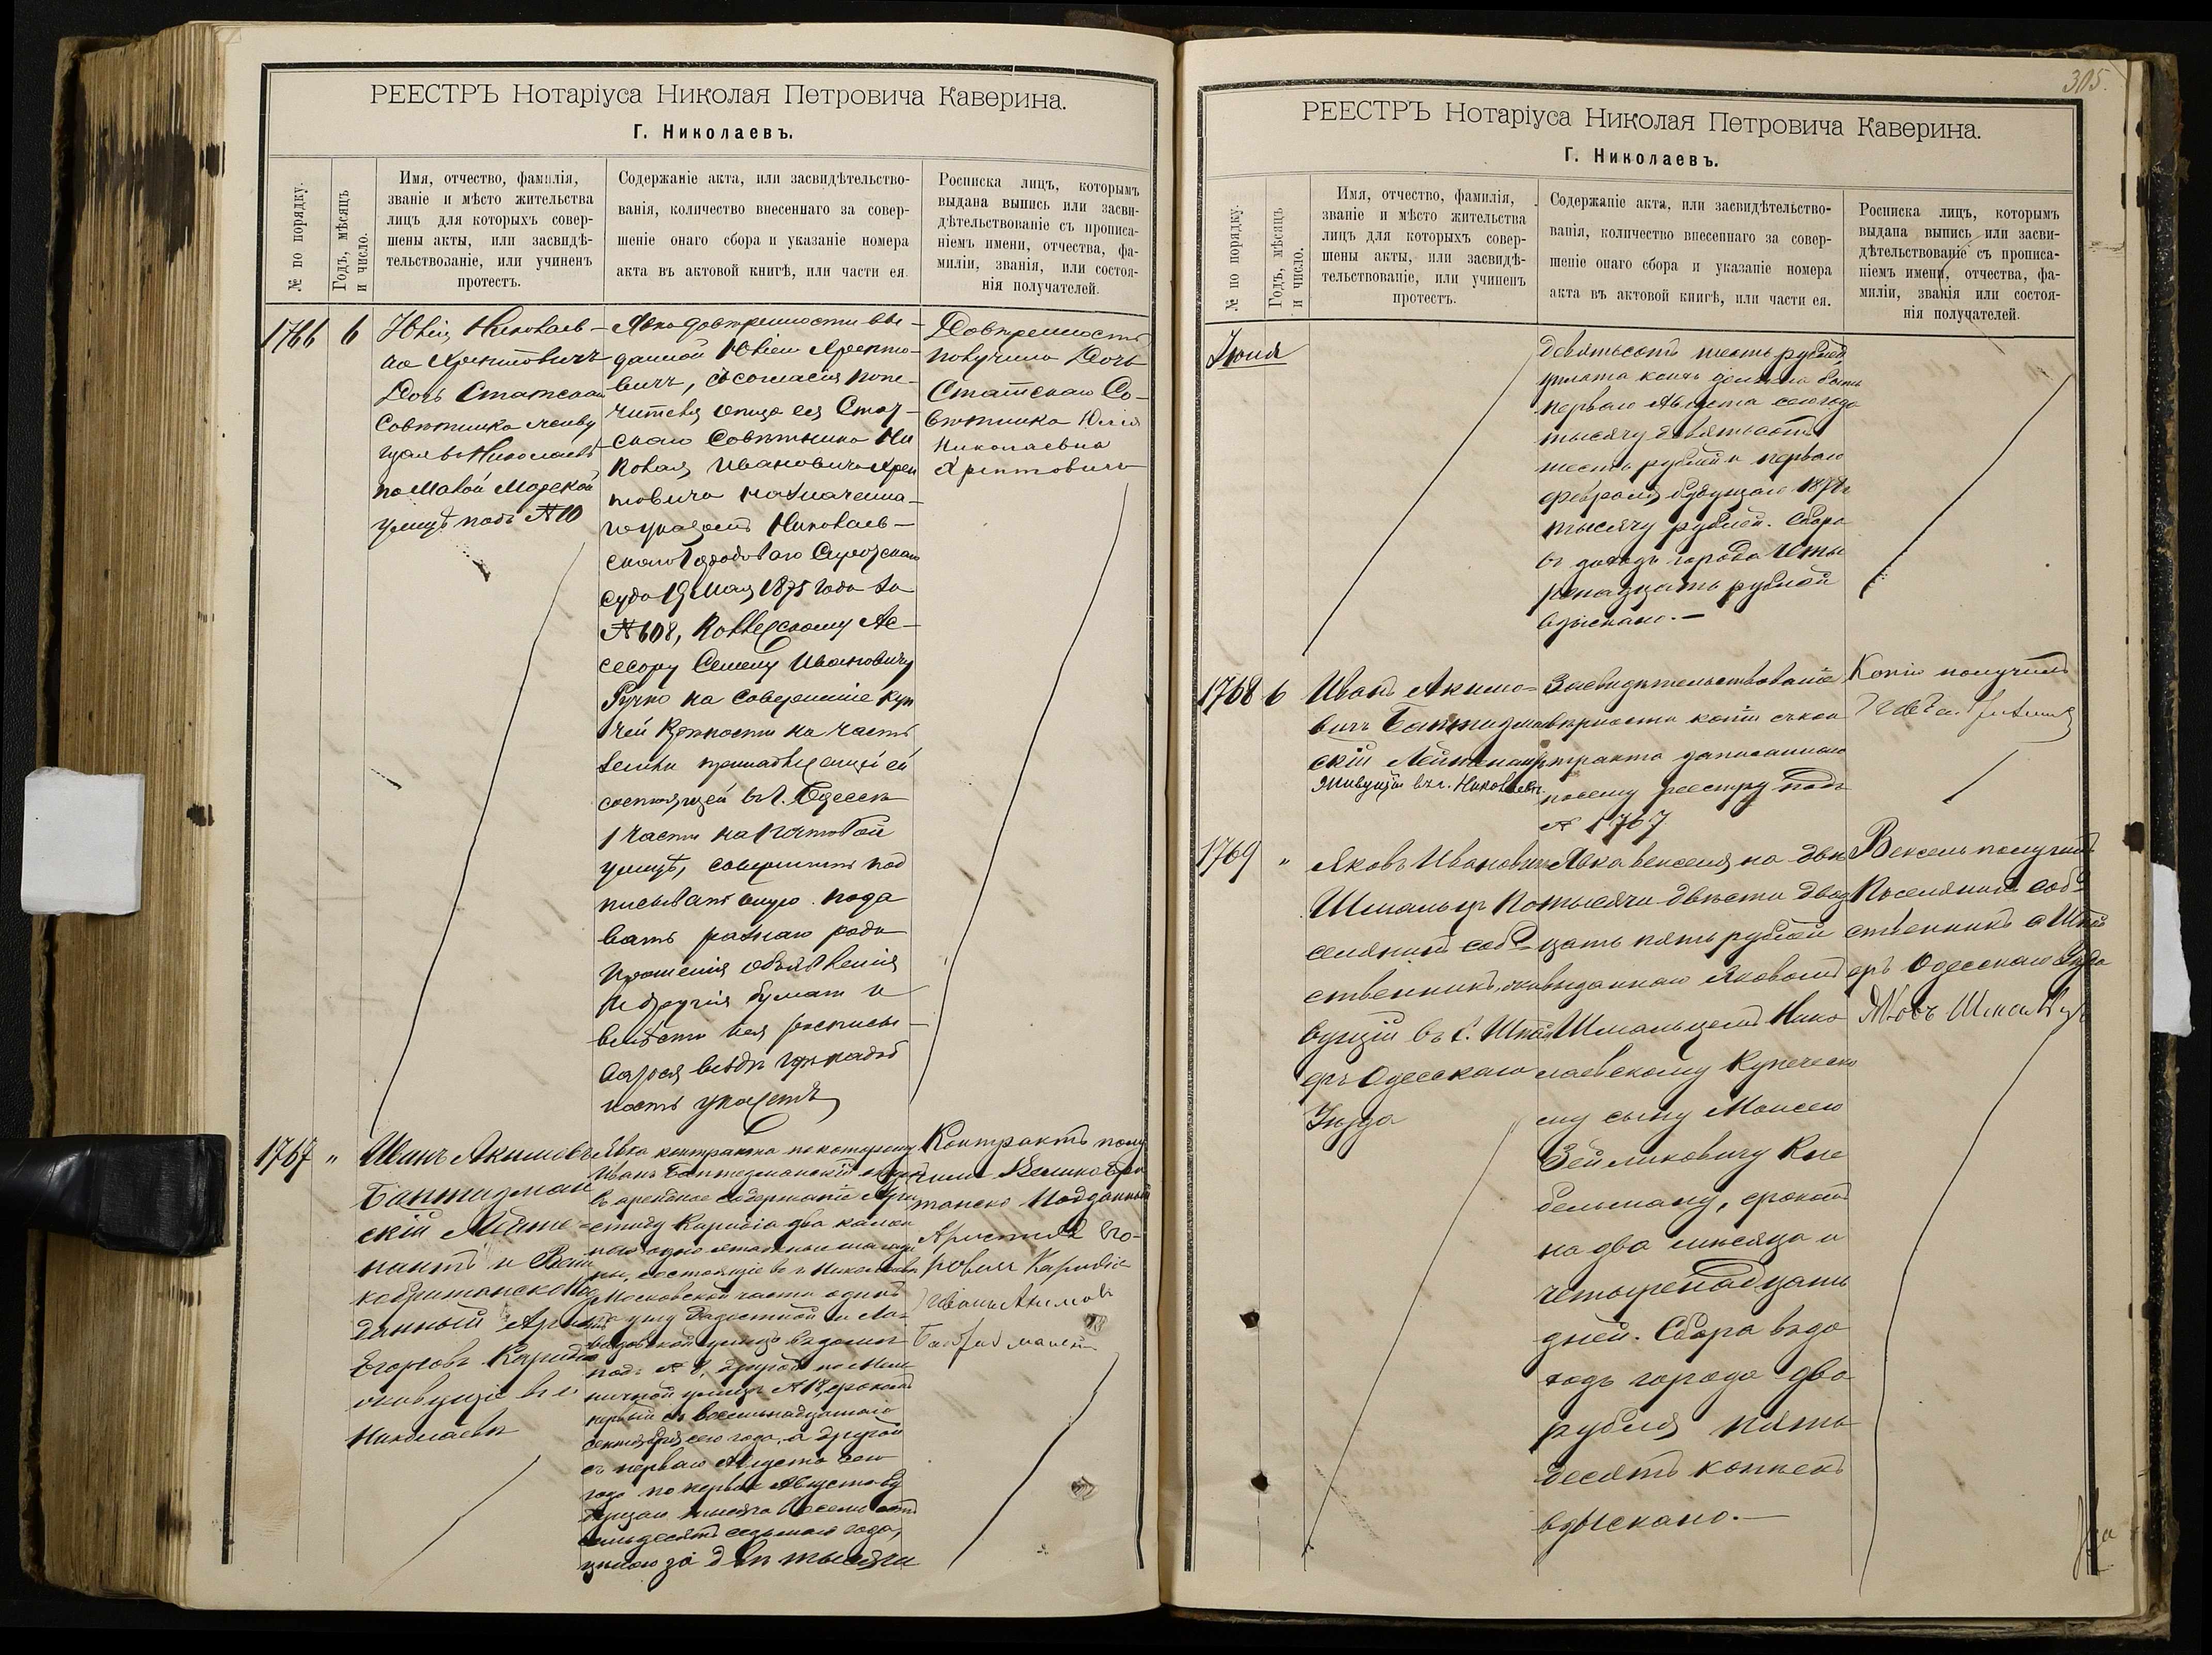 РЕЕСТРЪ Нотаріуса Николая Петровича Каверина.
Г. Николаевъ.
№ по порядку.
Годъ, мѣсяцъ
и число.
Имя, отчество, фамилія,
званіе и мѣсто жительства
лицъ для которыхъ совер-
шены акты, или засвидѣ-
тельствованіе, или учиненъ
протестъ.
Содержаніе акта, или засвидѣтельство-
ванія, количество внесеннаго за совер-
шеніе онаго сбора и указаніе номера
акта въ актовой книгѣ, или части ея.
Росписка лицъ, которымъ
выдана выпись или засви-
дѣтельствованіе съ прописа-
ніемъ имени, отчества, фа-
миліи, званія, или состоя-
нія получателей.
1766 6
Юлія Николаев-
на Хрептовичъ
Дочь Статскаго
Совѣтника живу
щая въ Николаевѣ
по Малой Морской
улицѣ подъ № 10
Явка довѣренности вы-
данной Юліею Хрепто-
вичъ, съ согласія попе-
чителя отца ея Стат-
скаго Совѣтника Ни
колая Ивановича Хреп
товича назначенна-
го указомъ Николаев-
скаго Городоваго Сиротскаго
Суда 19 Мая 1875 года за
№ 608, Коллежскому Ас-
сесору Семену Ивановичу
Ручко на совершеніе куп
чей крѣпости на часть
земли принадлежащей ей
состоящей въ г. Одессѣ
1 части на Почтовой
улицѣ, совершить под
писывать оную пода
вать разнаго рода
прошенія объявленія
и другія бумаги и
вмѣсто нея росписы-
ваться вездѣ гдѣ надоб
ность укажетъ
Довѣренность
получила Дочь
Статскаго Со-
вѣтника Юлія
Николаевна
Хрептовичъ
1767 "
Иванъ Акимовъ
Баптизман
скій Лейте-
нантъ и Вели
кобританскій по
данный Арист
Егоровъ Кариді
живущіе въ г.
Николаевѣ
Явка контракта по которому
Иванъ Баптизманскій отдалъ
въ арендное содержаніе Ари
стиду Каридіа два камен
ные одно этажные магази
ны, состоящіе въ г. Николаевѣ
Московской части одинъ
на углу и
улицъ въ домѣ
подъ № 8, другой по
ничной улицѣ № 18, срокомъ
первый съ восемнадцатаго
сентября сего года, а другой
съ перваго Августа сего
года по первое Августа бу
дущаго тысяча восемьсотъ
семьдесятъ седьмаго года,
цѣною за двѣ тысячи
Контрактъ полу
чили Великобри
танскій Подданный
Аристидъ Его-
ровичъ Каридіа
Иванъ Акимовъ
РЕЕСТРЪ Нотаріуса Николая Петровича Каверина.
Г. Николаевъ.
305.
№ по порядку.
Годъ, мѣсяцъ
и число.
Имя, отчество, фамилія,
званіе и мѣсто жительства
лицъ для которыхъ совер-
шены акты, или засвидѣ-
тельствованіе, или учиненъ
протестъ.
Содержаніе акта, или засвидѣтельство-
ванія, количество внесеннаго за совер-
шеніе онаго сбора и указаніе номера
акта въ актовой книгѣ, или части ея.
Росписка лицъ, которымъ
выдана выпись или засви-
дѣтельствованіе съ прописа-
ніемъ имени, отчества, фа-
миліи, званія или состоя-
нія получателей.
Іюня
девятьсотъ шесть рублей,
уплата коихъ должна быть
перваго Августа сего года
тысячу девятьсотъ
шесть рублей и перваго
февраля будущаго 1877 г.
тысячу рублей. Сбора
въ доходъ города четы
рнадцать рублей
взыскано.—
1768 6
Иванъ Акимо-
вичъ Баптизман
скій Лейтенантъ
живущій въ г. Николаевѣ
Засвидѣтельствованіе
вѣрности копіи съ кон
тракта записаннаго
по сему реестру подъ
№ 1767
Копію получилъ
1769 "
Яковъ Ивановичъ
Шмальцъ По
селянинъ соб-
ственникъ, жи
вущій въ с. Шпей
еръ Одесскаго
Уѣзда
Явка векселя на двѣ
тысячи двѣсти двад
цать пять рублей
выданнаго Яковомъ
Шмальцемъ Нико
лаевскому Купеческо
му сыну Моисею
Зейликовичу Кне
бельману, срокомъ
на два мѣсяца и
четырнадцать
дней. Сбора въ до
ходъ города два
рубля пять
десятъ копѣекъ
взыскано.—
Вексель получилъ
Поселянинъ соб-
ственникъ с Шпей
еръ Одесскаго Уѣзда
Яковъ Шмальцъ